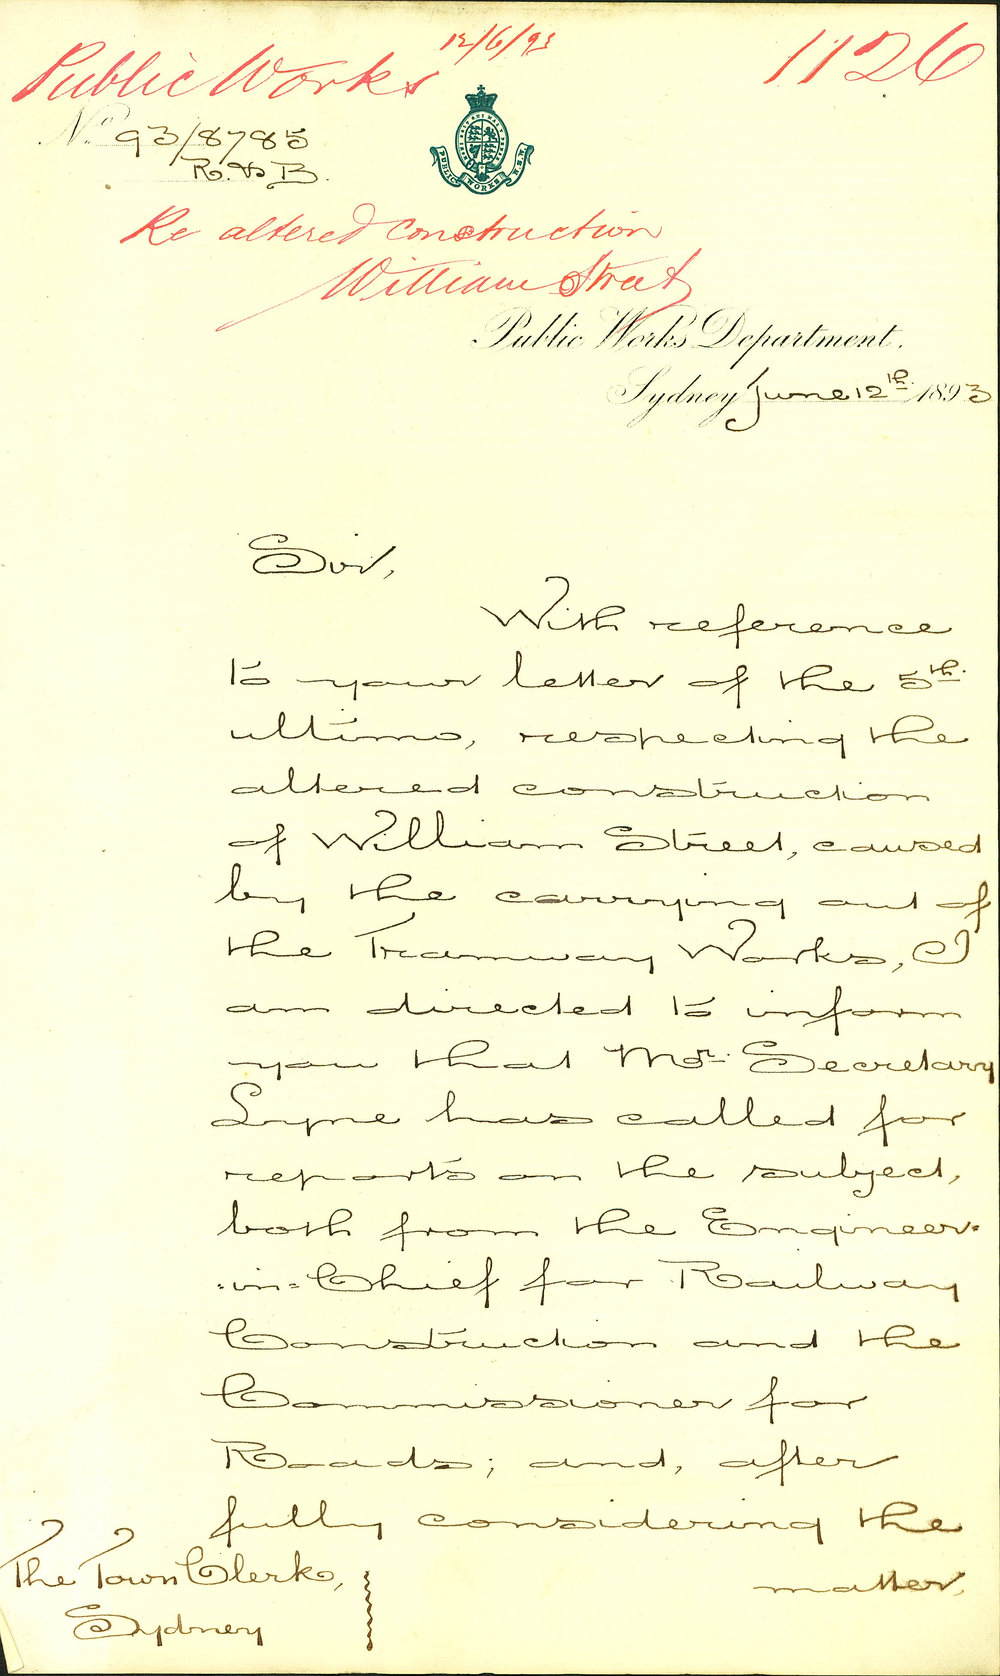 12/6/93
Public Works
1126
No. 93/8785
R. & B.
PUBLIC WORKS N.S.W.
Re altered construction
William Street
Public Works Department.
Sydney June 12th. 1893
Sir,
With reference
to your letter of the 5th.
ultimo, respecting the
altered construction
of William Street, caused
by the carrying out of
the Tramway Works, I
am directed to inform
you that Mr. Secretary
Lyne has called for
reports on the subject,
both from the Engineer-
-in-Chief for Railway
Construction and the
Commissioner for
Roads; and, after
fully considering the
matter,
The Town Clerk,
Sydney